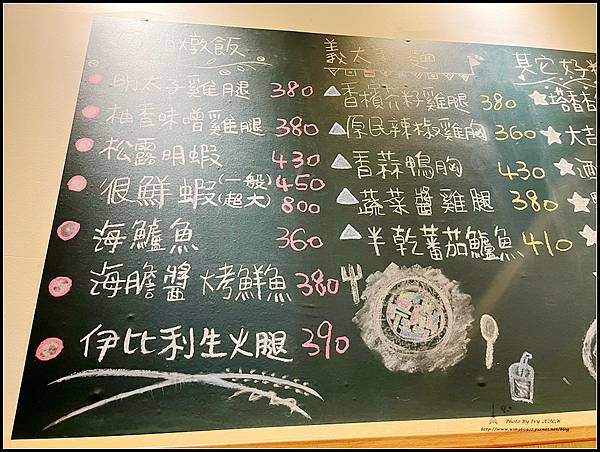 燉飯
明太子雞腿 380
柚香味噌雞腿 380
松露明蝦 430
很鮮蝦(一般) 450
(超大) 800
海鱸魚 360
海膽醬烤鮮魚 380
伊比利生火腿 390
義大利麵
香檳芥籽雞腿 380
原民辣椒雞胸 360
香蒜鴨胸 430
蔬菜醬雞腿 380
半乾蕃茄鱸魚 410
其它好
塔香
大吉
酒
Photo By Ivy